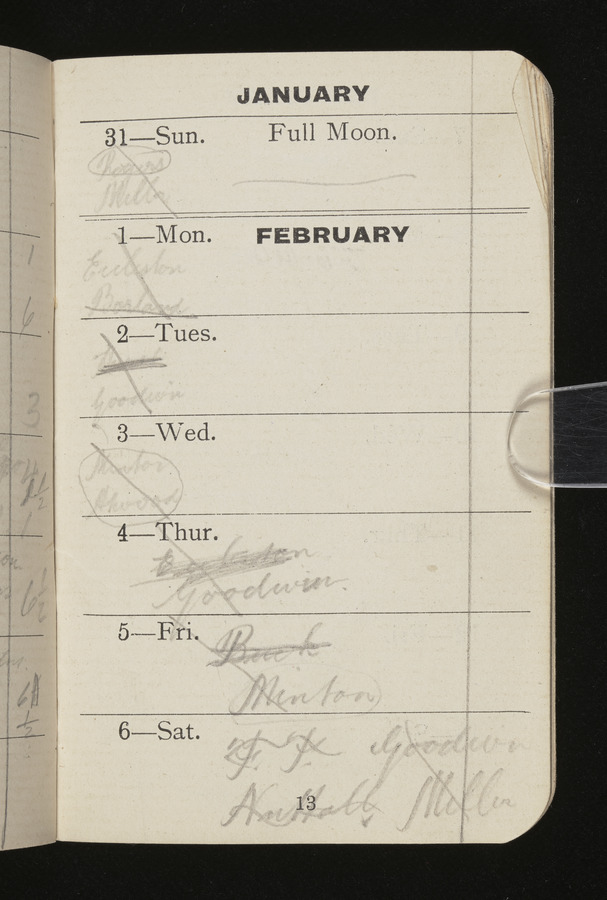 JANUARY
31—Sun. Full Moon.
Rogers
Miller
1—Mon. FEBRUARY
1
Eccleston
Borland
6
2—Tues.
Goodwin
3
3—Wed.
Minton
Atwood
1 1/2
4—Thur.
Eccleston
Goodwin
6 1/2
5—Fri. Buck
Minton
6 1/2
6—Sat.
Goodwin
Nuthall Miller
13